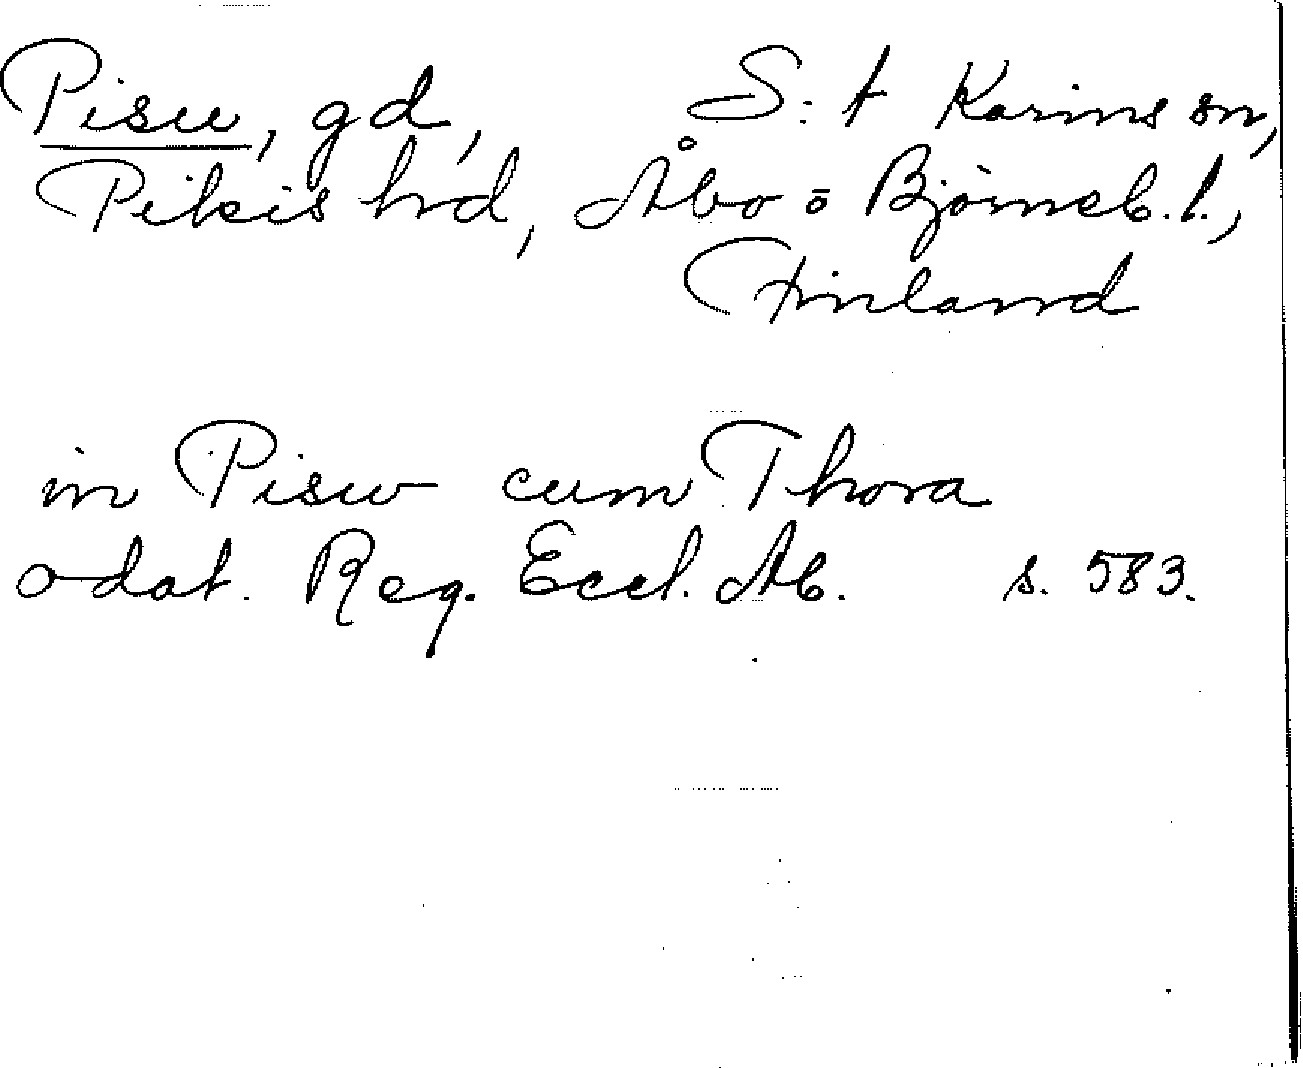 Pisu, gd, S:t Karins sn,
Pikis hrd, Åbo o Björneb. l.,
Finland
in Pisw cum Thora
odat. Reg. Eccl. Ab. s. 583.